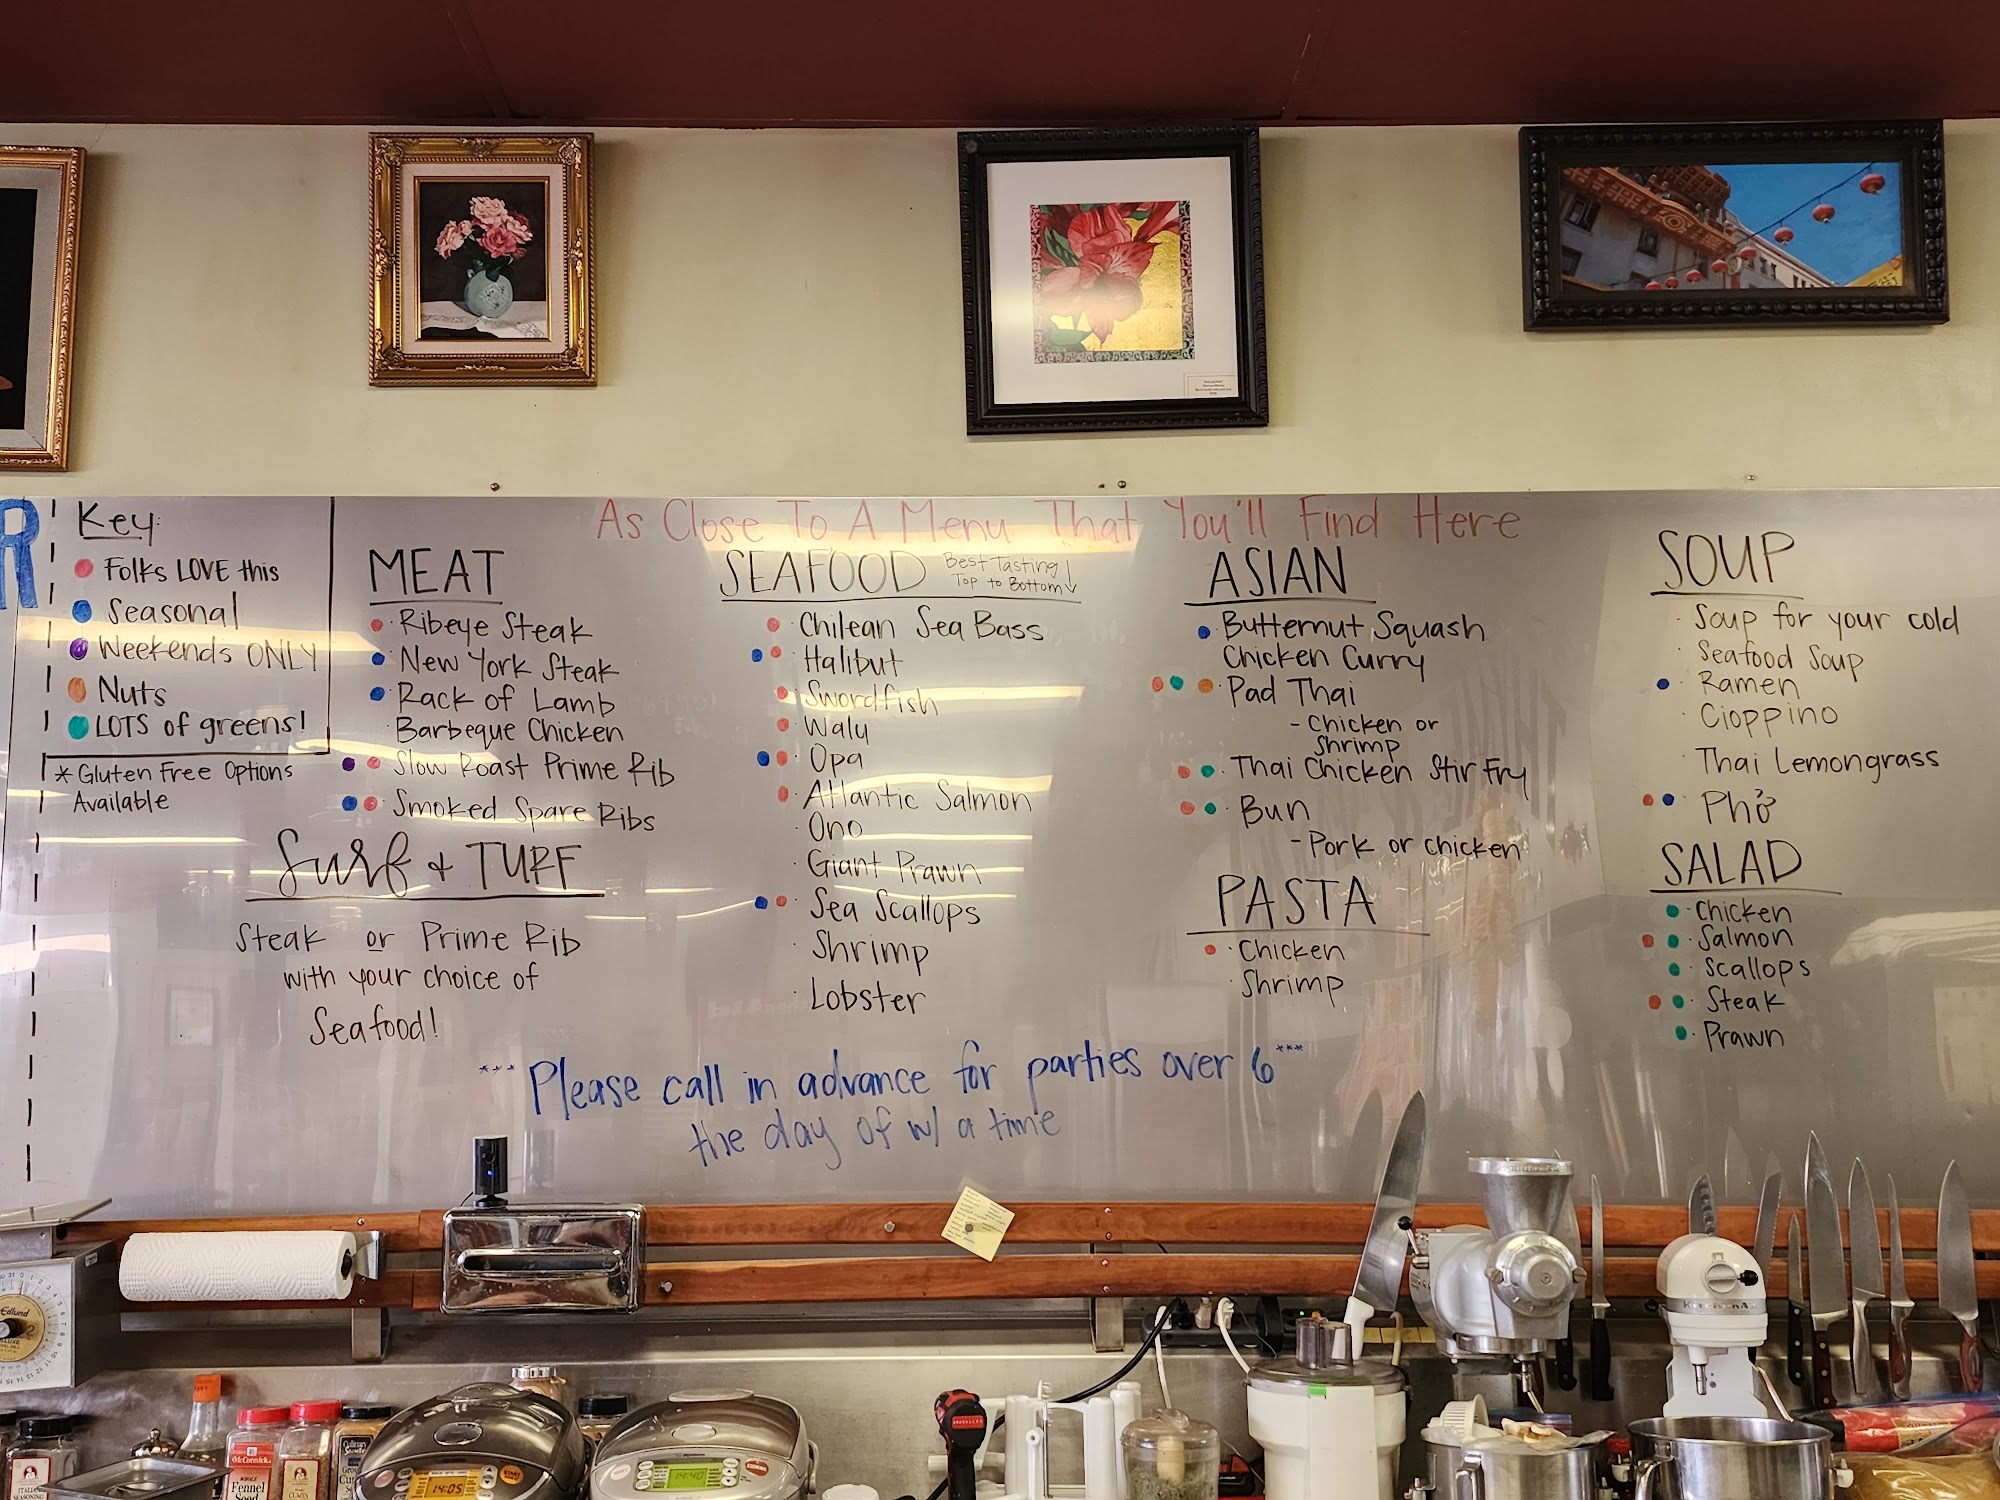 R
Key:
Folks LOVE this
Seasonal
Weekends ONLY
Nuts
LOTS of greens!
*Gluten Free Options
Available
As Close To A Menu That You'll Find Here
MEAT
· Ribeye Steak
· New York Steak
· Rack of Lamb
· Barbeque Chicken
· Slow Roast Prime Rib
· Smoked Spare Ribs
Surf & TURF
Steak or Prime Rib
with your choice of
Seafood!
SEAFOOD
Best Tasting
Top to Bottom ↓
· Chilean Sea Bass
· Halibut
· Swordfish
· Walu
· Opa
· Atlantic Salmon
· Ono
· Giant Prawn
· Sea Scallops
· Shrimp
· Lobster
ASIAN
· Butternut Squash
Chicken Curry
· Pad Thai
- Chicken or
Shrimp
· Thai Chicken Stir Fry
· Bun
- Pork or chicken
PASTA
· Chicken
· Shrimp
SOUP
· Soup for your cold
· Seafood Soup
· Ramen
· Cioppino
· Thai Lemongrass
· Phở
SALAD
· Chicken
· Salmon
· Scallops
· Steak
· Prawn
*** Please call in advance for parties over 6 ***
the day of w/ a time
Edlund
DELUXE
McCormick
Fennel
Seed
CUMIN
ITALIAN
SEASONING
14:05
14:40
START
KitchenAid